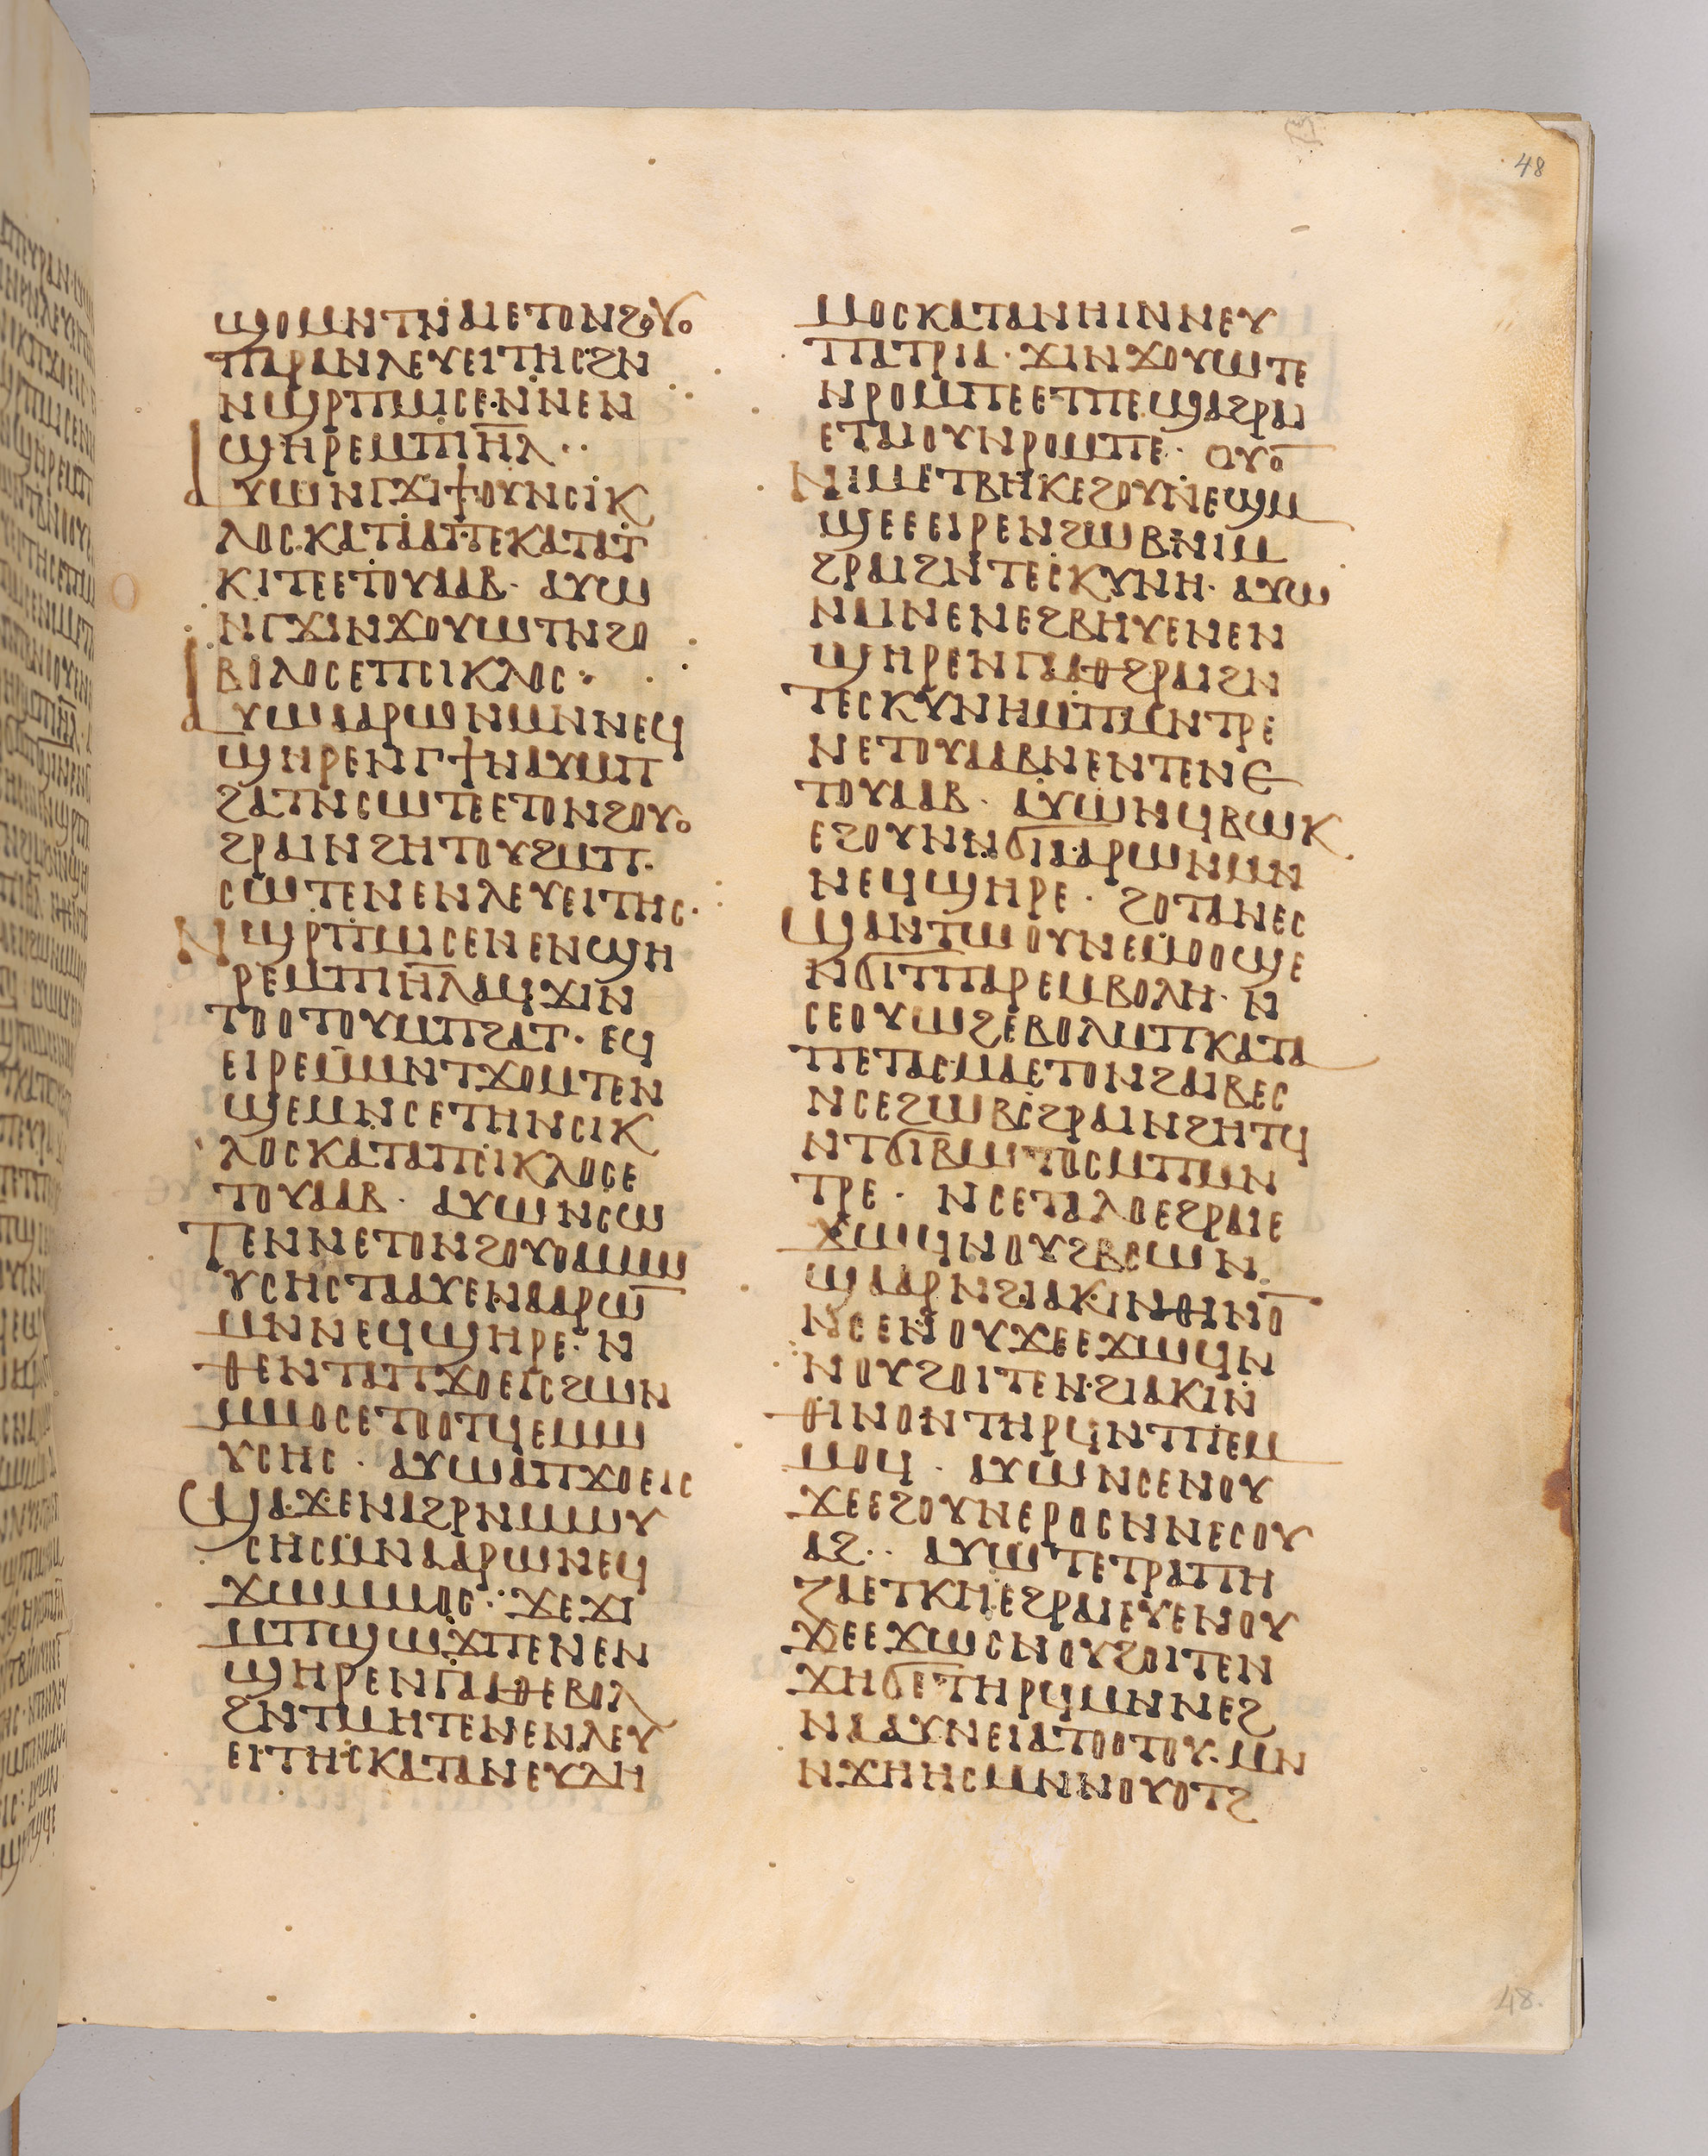 48
ϣⲟⲙⲛⲧⲛⲇⲉⲧⲟⲛϩⲟⲩⲟ
ⲡⲁⲣⲁⲛⲗⲉⲩⲉⲓⲧⲏⲥ·ϩⲛ
ⲛϣⲣⲡⲙⲓⲥⲉ·ⲛⲛⲉⲛ
ϣⲏⲣⲉⲙⲡⲓⲏ̅ⲗ̅··
ⲁⲩⲱⲛⲅϫⲓϯⲟⲩⲛⲥⲓⲕ
ⲗⲟⲥ·ⲕⲁⲧⲁⲁⲡⲉ·ⲕⲁⲧⲁⲧ
ⲕⲓⲧⲉⲉⲧⲟⲩⲁⲁⲃ· ⲁⲩⲱ
ⲛⲅϫⲓⲛϫⲟⲩⲱⲧⲛϩⲟ
ⲃⲟⲗⲟⲥⲉⲡⲥⲓⲕⲗⲟⲥ:
ⲁⲩⲱⲁⲁⲣⲱⲛⲙⲛⲛⲉϥ
ϣⲏⲣⲉⲛⲅϯⲛⲁⲩⲙⲡ
ϩⲁⲧⲛⲥⲱⲧⲉⲉⲧⲟⲛϩⲟⲩⲟ
ϩⲣⲁⲓⲛϩⲏⲧⲟⲩϩⲙⲡ·
ⲥⲱⲧⲉⲛⲉⲛⲗⲉⲩⲉⲓⲧⲏⲥ·
ⲛϣⲣⲡⲙⲓⲥⲉⲛⲉⲛϣⲏ
ⲣⲉⲙⲡⲓⲏ̅ⲗ̅ⲁϥϫⲓⲛ
ⲧⲟⲟⲧⲟⲩⲙⲡϩⲁⲧ· ⲉϥ
ⲉⲓⲣⲉⲙⲙⲛⲧϫⲟⲙⲧⲉⲛ
ϣⲉⲙⲛⲥⲉⲧⲏⲛⲥⲓⲕ
ⲗⲟⲥⲕⲁⲧⲁⲡⲥⲓⲕⲗⲟⲥⲉ
ⲧⲟⲩⲁⲁⲃ· ⲁⲩⲱⲛⲥⲱ
ⲧⲉⲛⲛⲉⲧⲟⲛϩⲟⲩⲟⲁⲙⲱ
ⲩⲥⲏⲥⲧⲁⲁⲩⲉⲛⲁⲁⲣⲱ̅
ⲙⲛⲛⲉϥϣⲏⲣⲉ· ⲛ
ⲑⲉⲛⲧⲁⲡϫⲟⲉⲓⲥϩⲱⲛ
ⲙⲙⲟⲥⲉⲧⲟⲟⲧϥⲉⲙⲱ
ⲩⲥⲏⲥ· ⲁⲩⲱⲁⲡϫⲟⲉⲓⲥ
ϣⲁϫⲉⲛⲁϩⲣⲛⲙⲱⲩ
ⲥⲏⲥⲙⲛⲁⲁⲣⲱⲛⲉϥ
ϫⲱⲙⲙⲟⲥ: ϫⲉϫⲓ
ⲙⲡϣⲱϫⲡⲉⲛⲉⲛ
ϣⲏⲣⲉⲛⲅⲁⲁⲑⲉⲃⲟⲗ
ϩⲛⲧⲙⲏⲧⲉⲛⲉⲛⲗⲉⲩ
ⲉⲓⲧⲏⲥⲕⲁⲧⲁⲛⲉⲩⲇⲏ
ⲙⲟⲥⲕⲁⲧⲁⲛⲏⲓⲛⲛⲉⲩ
ⲡⲁⲧⲣⲓⲁ· ϫⲓⲛϫⲟⲩⲱⲧⲉ
ⲛⲣⲟⲙⲡⲉⲉⲧⲡⲉϣⲁϩⲣⲁⲓ
ⲉⲧⲁⲓⲟⲩⲛⲣⲟⲙⲡⲉ· ⲟⲩⲟ̅
ⲛⲓⲙⲉⲧⲃⲏⲕⲉϩⲟⲩⲛⲉϣⲙ
ϣⲉⲉⲉⲓⲣⲉⲛϩⲱⲃⲛⲓⲙ
ϩⲣⲁⲓϩⲛⲧⲉⲥⲕⲩⲛⲏ· ⲁⲩⲱ
ⲛⲁⲓⲛⲉⲛⲉϩⲃⲏⲩⲉⲛⲉⲛ
ϣⲏⲣⲉⲛⲅⲁⲁⲑϩⲣⲁⲓϩⲛ
ⲧⲉⲥⲕⲩⲛⲏⲙⲡⲙⲛⲧⲣⲉ
ⲛⲉⲧⲟⲩⲁⲁⲃⲛⲉⲛⲧⲉⲛⲉ
ⲧⲟⲩⲁⲁⲃ· ⲁⲩⲱⲛϥⲃⲱⲕ
ⲉϩⲟⲩⲛⲛϭⲓⲁⲁⲣⲱⲛⲙⲛ
ⲛⲉϥϣⲏⲣⲉ· ϩⲟⲧⲁⲛⲉⲥ
ϣⲁⲛⲧⲱⲟⲩⲛⲉⲙⲟⲟϣⲉ
ⲛϭⲓⲧⲡⲁⲣⲉⲙⲃⲟⲗⲏ· ⲛ
ⲥⲉⲟⲩⲱϩⲉⲃⲟⲗⲙⲡⲕⲁⲧⲁ
ⲡⲉⲧⲁⲥⲙⲁⲉⲧⲟⲛϩⲁⲓⲃⲉⲥ
ⲛⲥⲉϩⲱⲃⲥϩⲣⲁⲓⲛϩⲏⲧϥ
ⲛⲧϭⲓⲃⲱⲧⲟⲥⲙⲡⲙⲛ
ⲧⲣⲉ· ⲛⲥⲉⲧⲁⲗⲟⲉϩⲣⲁⲓⲉ
ϫⲱϥⲛⲟⲩϩⲃⲥⲱⲛ
ϣⲁⲁⲣⲛϩⲓⲁⲕⲓⲛⲑⲓⲛⲟ̅
ⲛⲥⲉⲛⲟⲩϫⲉⲉϫⲱϥⲛ
ⲛⲟⲩϩⲟⲓⲧⲉⲛ·ϩⲓⲁⲕⲓⲛ
ⲑⲓⲛⲟⲛⲧⲏⲣϥⲛⲧⲡⲉⲙ
ⲙⲟϥ· ⲁⲩⲱⲛⲥⲉⲛⲟⲩ
ϫⲉⲉϩⲟⲩⲛⲉⲣⲟⲥⲛⲛⲉⲥⲟⲩ
ⲁϩ·· ⲁⲩⲱⲧⲉⲧⲣⲁⲡⲏ
ⲍⲁⲉⲧⲕⲏⲉϩⲣⲁⲓⲉⲩⲉⲛⲟⲩ
ϫⲉⲉϫⲱⲥⲛⲟⲩϩⲟⲓⲧⲉⲛ
ϫⲏϭⲉⲧⲏⲣϥⲙⲛⲛⲉϩ
ⲛⲁⲁⲩⲛⲉⲓⲁⲧⲟⲟⲧⲟⲩ·ⲙⲛ
ⲛϫⲏⲏⲥⲙⲛⲛⲟⲩⲟⲧϩ
48.